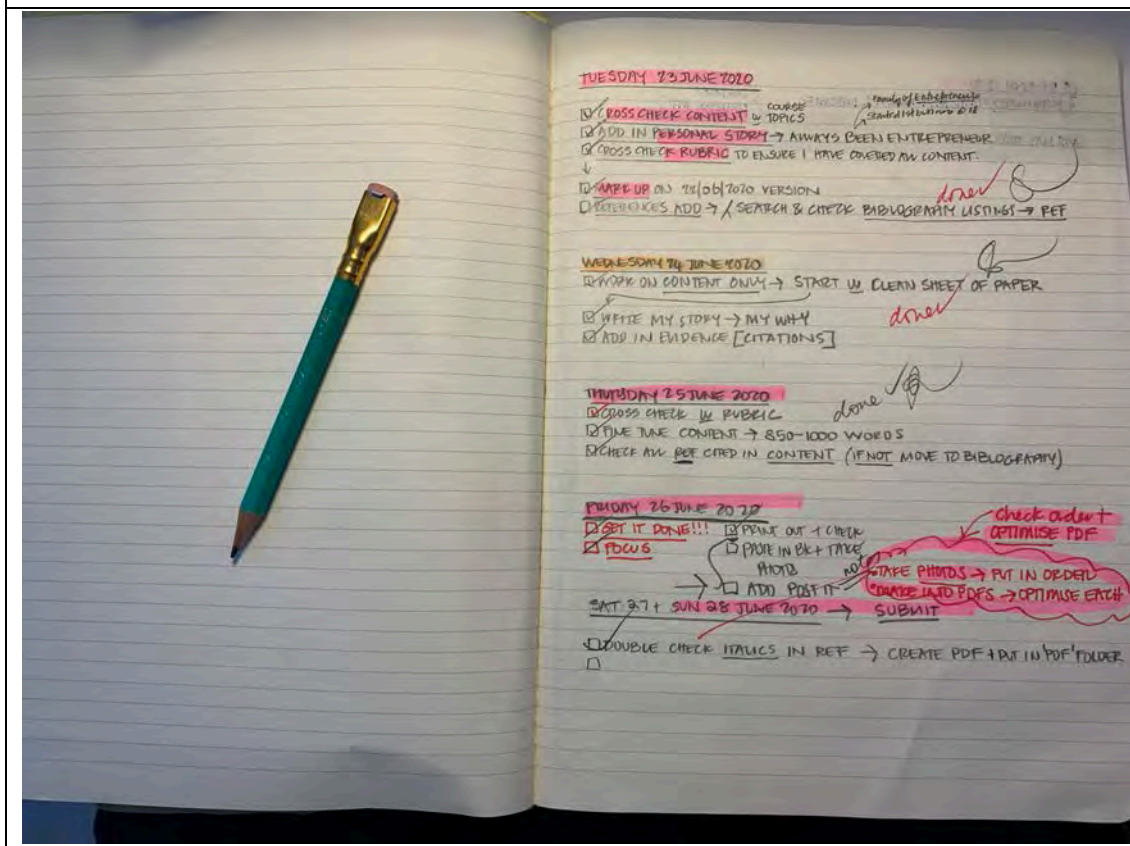 TUESDAY 23 JUNE 2020
Family of Entrepreneurs
☑ CROSS CHECK CONTENT W COURSE TOPICS
Started 1st business @ 18
☑ ADD IN PERSONAL STORY → ALWAYS BEEN ENTREPRENEUR
☑ CROSS CHECK RUBRIC TO ENSURE I HAVE COVERED ALL CONTENT.
↓
☑ MARK UP ON /06/2020 VERSION
done
☐ REFERENCES ADD → / SEARCH & CHECK BIBLOGRAPHY LISTINGS → REF
WEDNESDAY 24 JUNE 2020
☑ WORK ON CONTENT ONLY → START W CLEAN SHEET OF PAPER
done
☑ WRITE MY STORY → MY WHY
☑ ADD IN EVIDENCE [CITATIONS]
THURSDAY 25 JUNE 2020
done
☑ CROSS CHECK W RUBRIC
☑ FINE TUNE CONTENT → 850-1000 WORDS
☑ CHECK ALL REF CITED IN CONTENT (IF NOT MOVE TO BIBLOGRAPHY)
FRIDAY 26 JUNE 2020
☑ GET IT DONE!!! ☑ PRINT OUT + CHECK
☑ FOCUS ☐ PASTE IN BK + TAKE PHOTOS
→ ☐ ADD POST IT
check order + OPTIMISE PDF
TAKE PHOTOS → PUT IN ORDER
MAKE INTO PDFS → OPTIMISE EACH
SAT 27 + SUN 28 JUNE 2020 → SUBMIT
☑ DOUBLE CHECK ITALICS IN REF → CREATE PDF + PUT IN 'PDF' FOLDER
☐